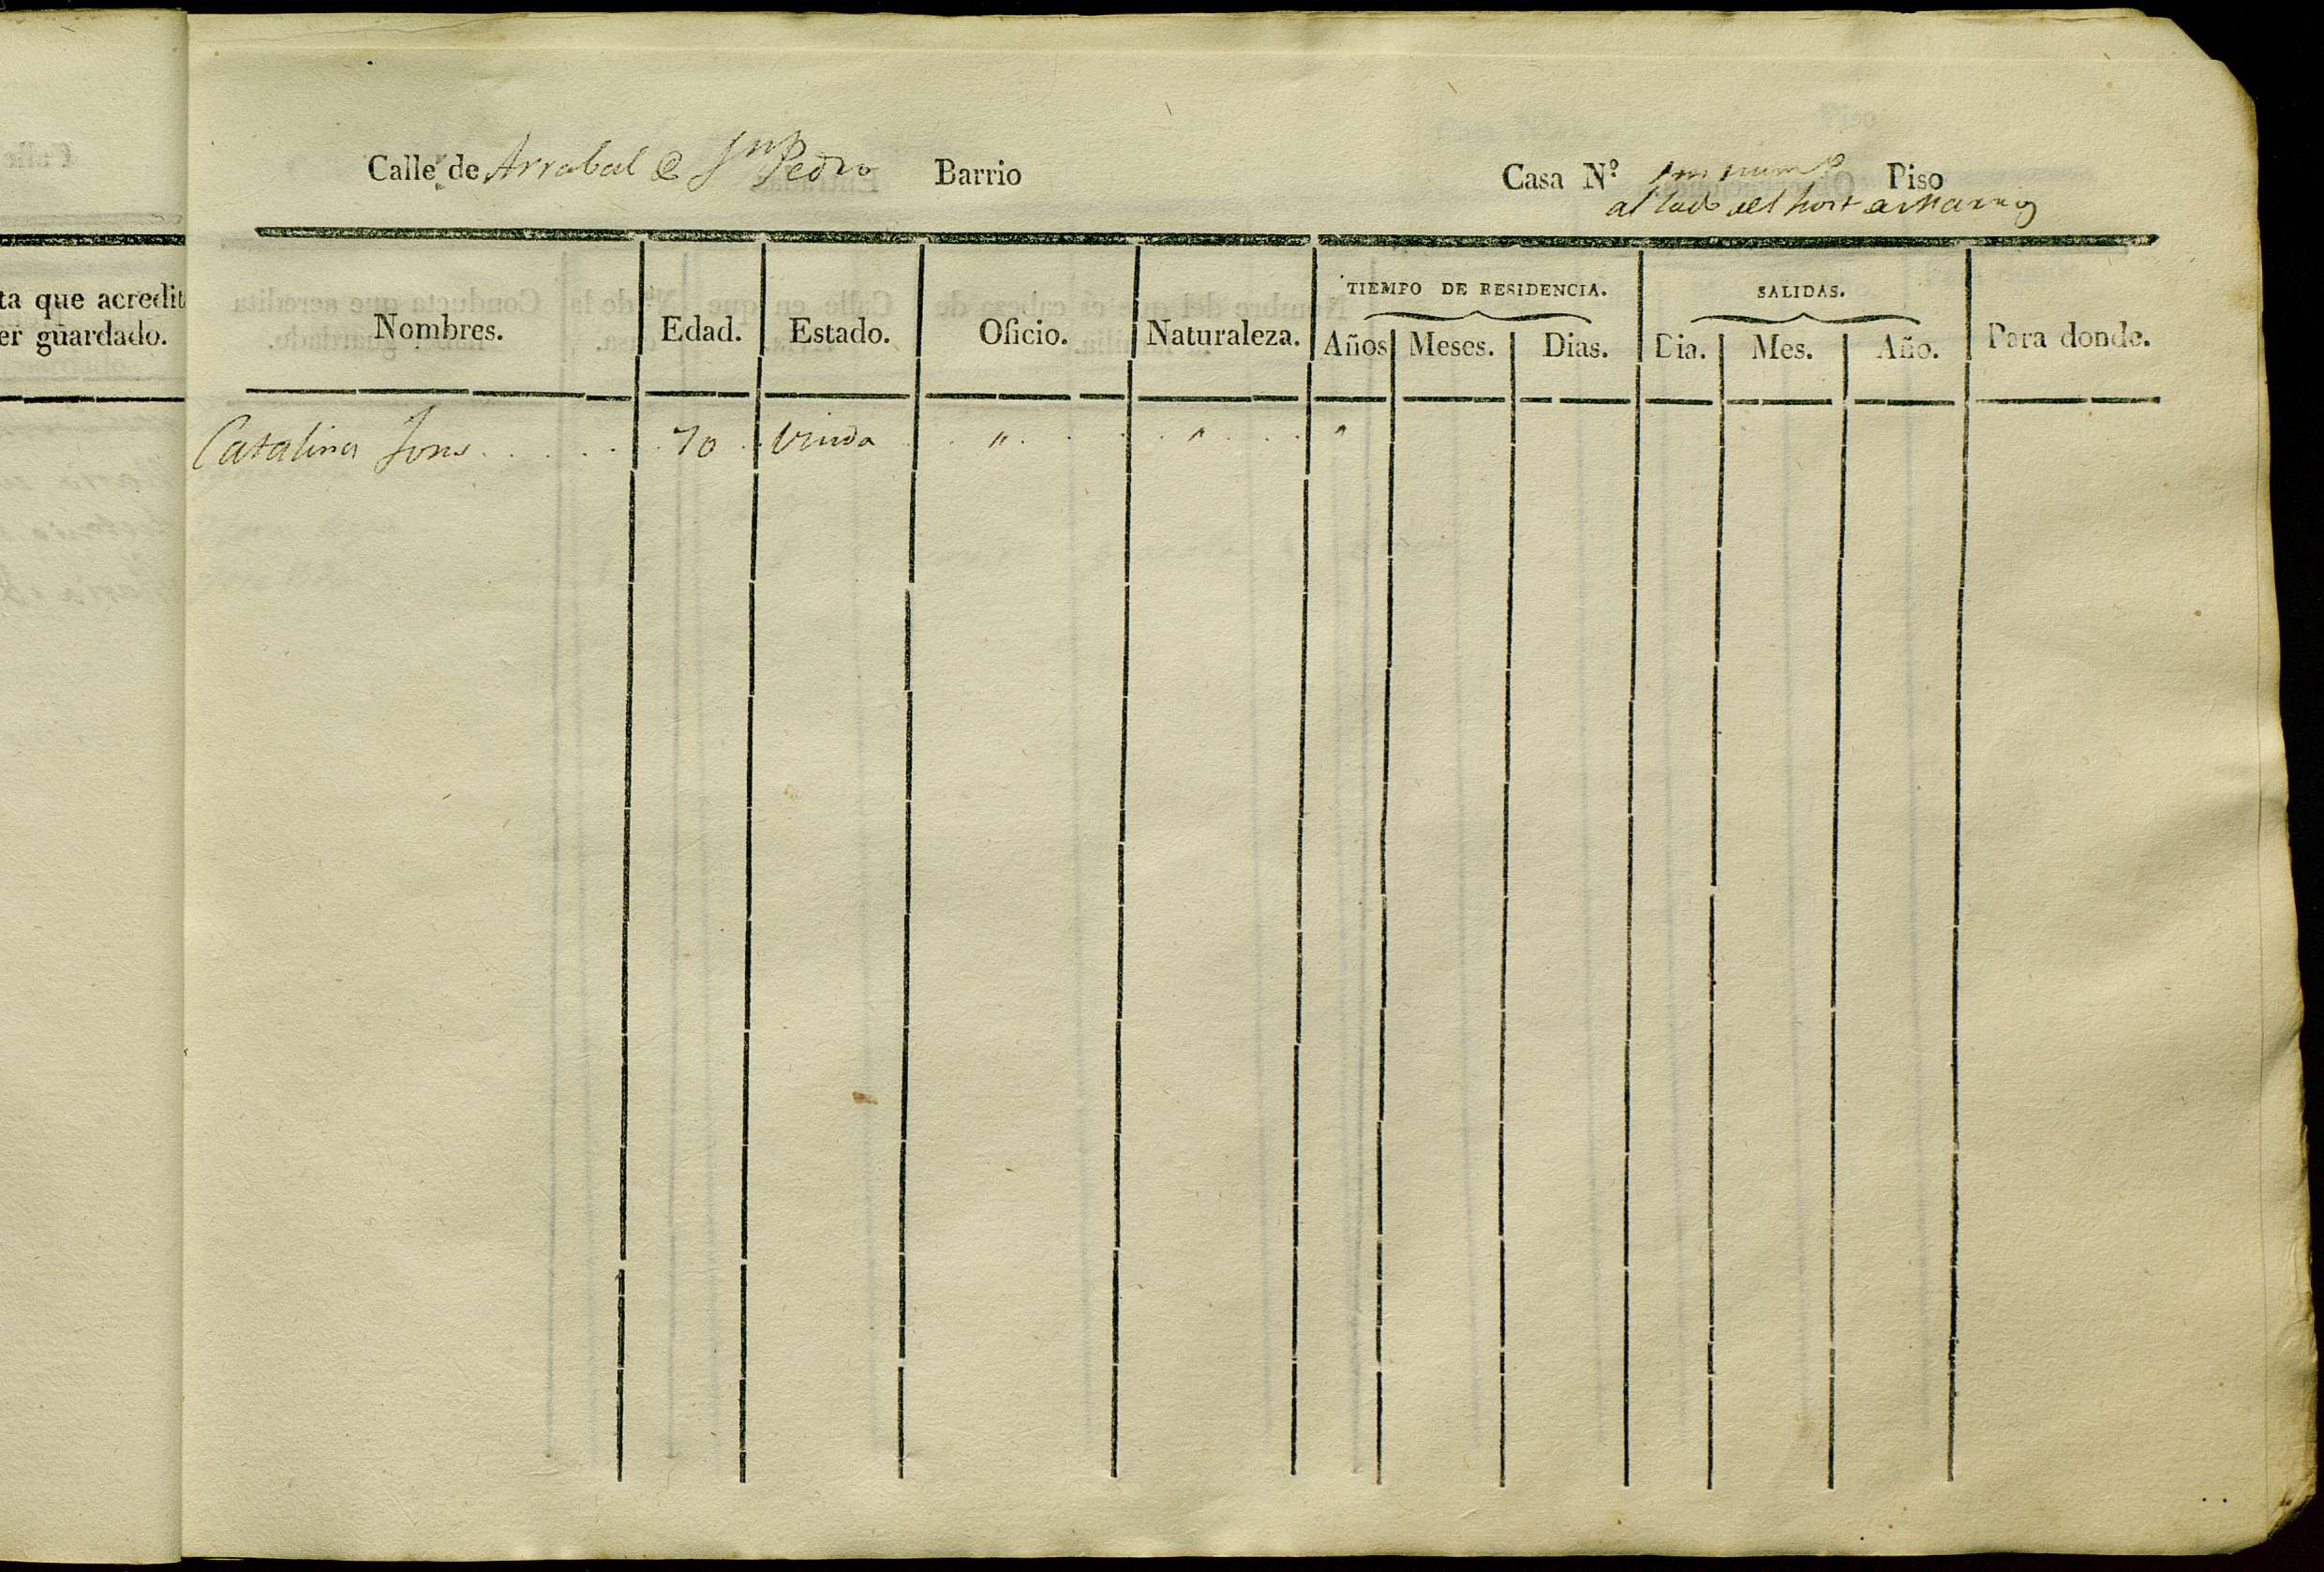 Calle de Arrabal de Sn Pedro Barrio Casa N.º sin numº Piso
al lado del hort
ta que acredit
er guardado.
Nombres. Edad. Estado. Oficio. Naturaleza. TIEMPO DE RESIDENCIA. Años Meses. Dias. SALIDAS. Dia. Mes. Año. Para donde.
Catalina . . . . . . 70 . . Viuda . . " . . . . " . . . . "